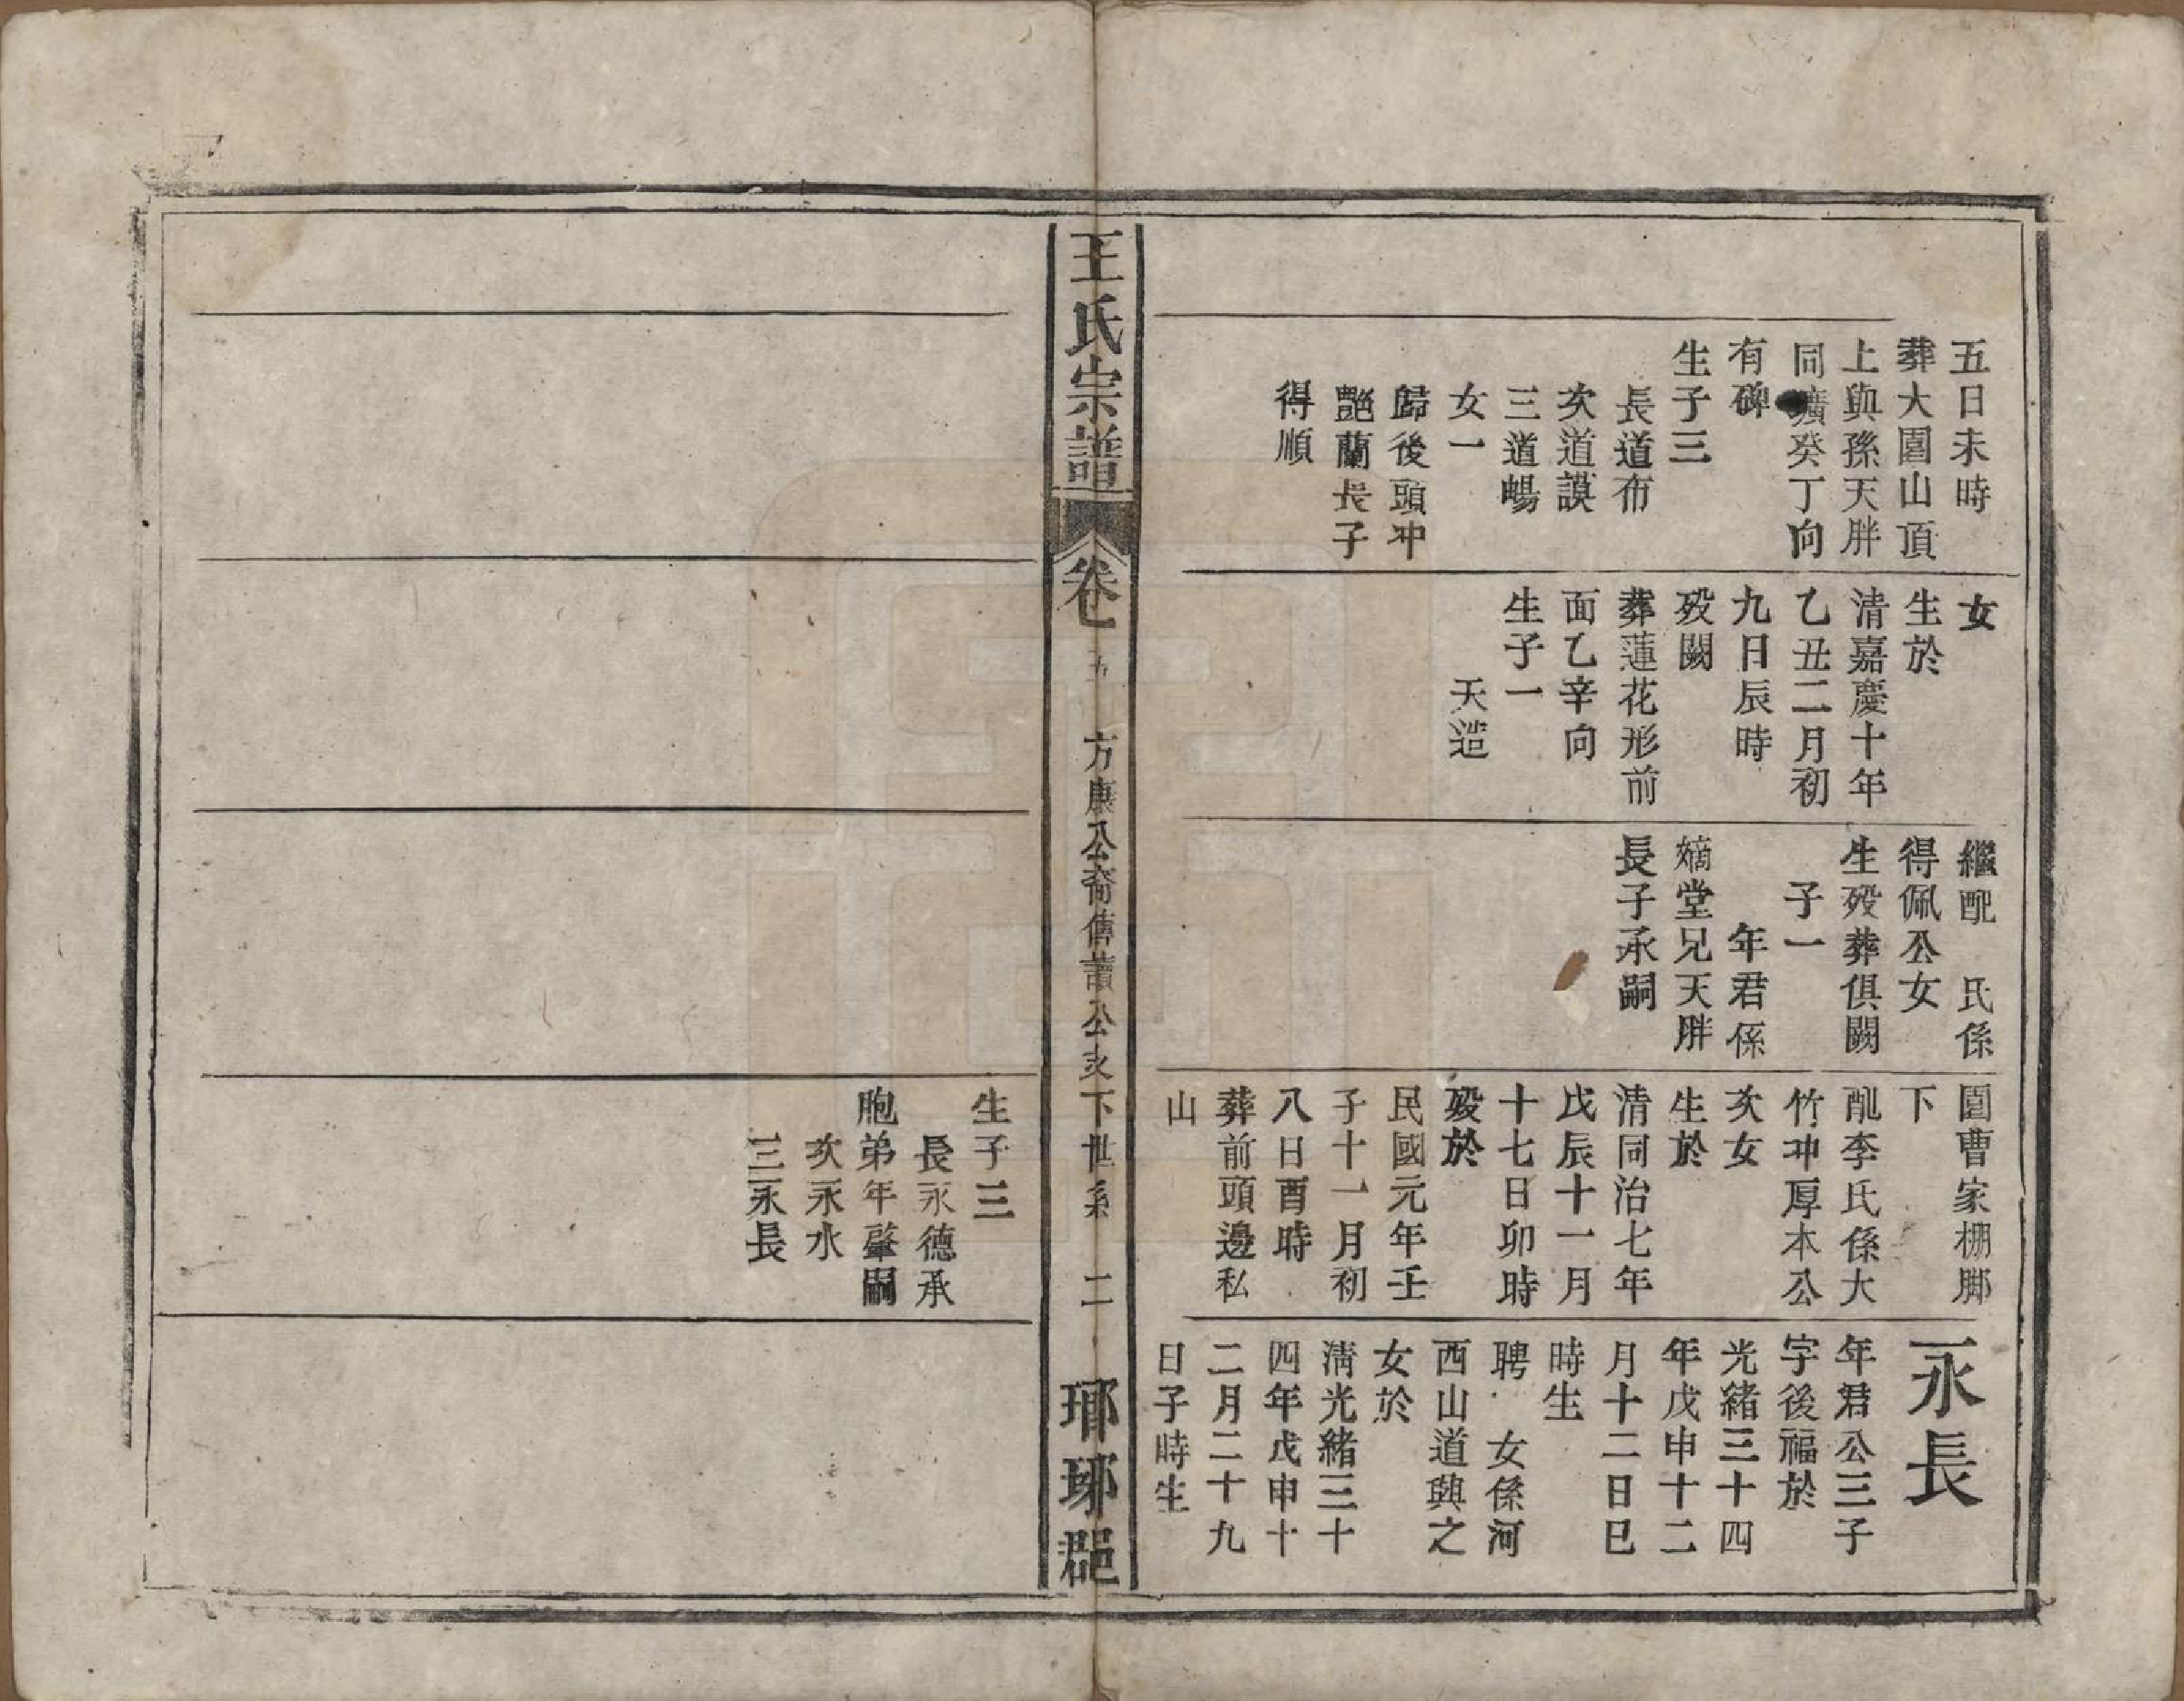 五日未時
葬大圍山頂
上與孫天胖
同壙癸丁向
有碑
生子三
長道布
次道謨
三道暢
女一
歸後頭冲
艷蘭長子
得順
女
生於
清嘉慶十年
乙丑二月初
九日辰時
歿闕
葬蓮花形前
面乙辛向
生子一
天造
繼配　氏係
得佩公女
生歿葬俱闕
子一
年君係
嫡堂兄天胖
長子承嗣
圍曹家棚腳
下
配李氏係大
竹冲厚本公
次女
生於
清同治七年
戊辰十一月
十七日卯時
歿於
民國元年壬
子十一月初
八日酉時
葬前頭邊私
山
永長
年君公三子
字後福於
光緒三十四
年戊申十二
月十二日巳
時生
聘　女係河
西山道興之
女於
清光緒三十
四年戊申十
二月二十九
日子時生
王氏宗譜
卷五
方康公裔傳公支下世系
二
瑯琊郡
生子三
長永德承
胞弟年肇嗣
次永水
三永長